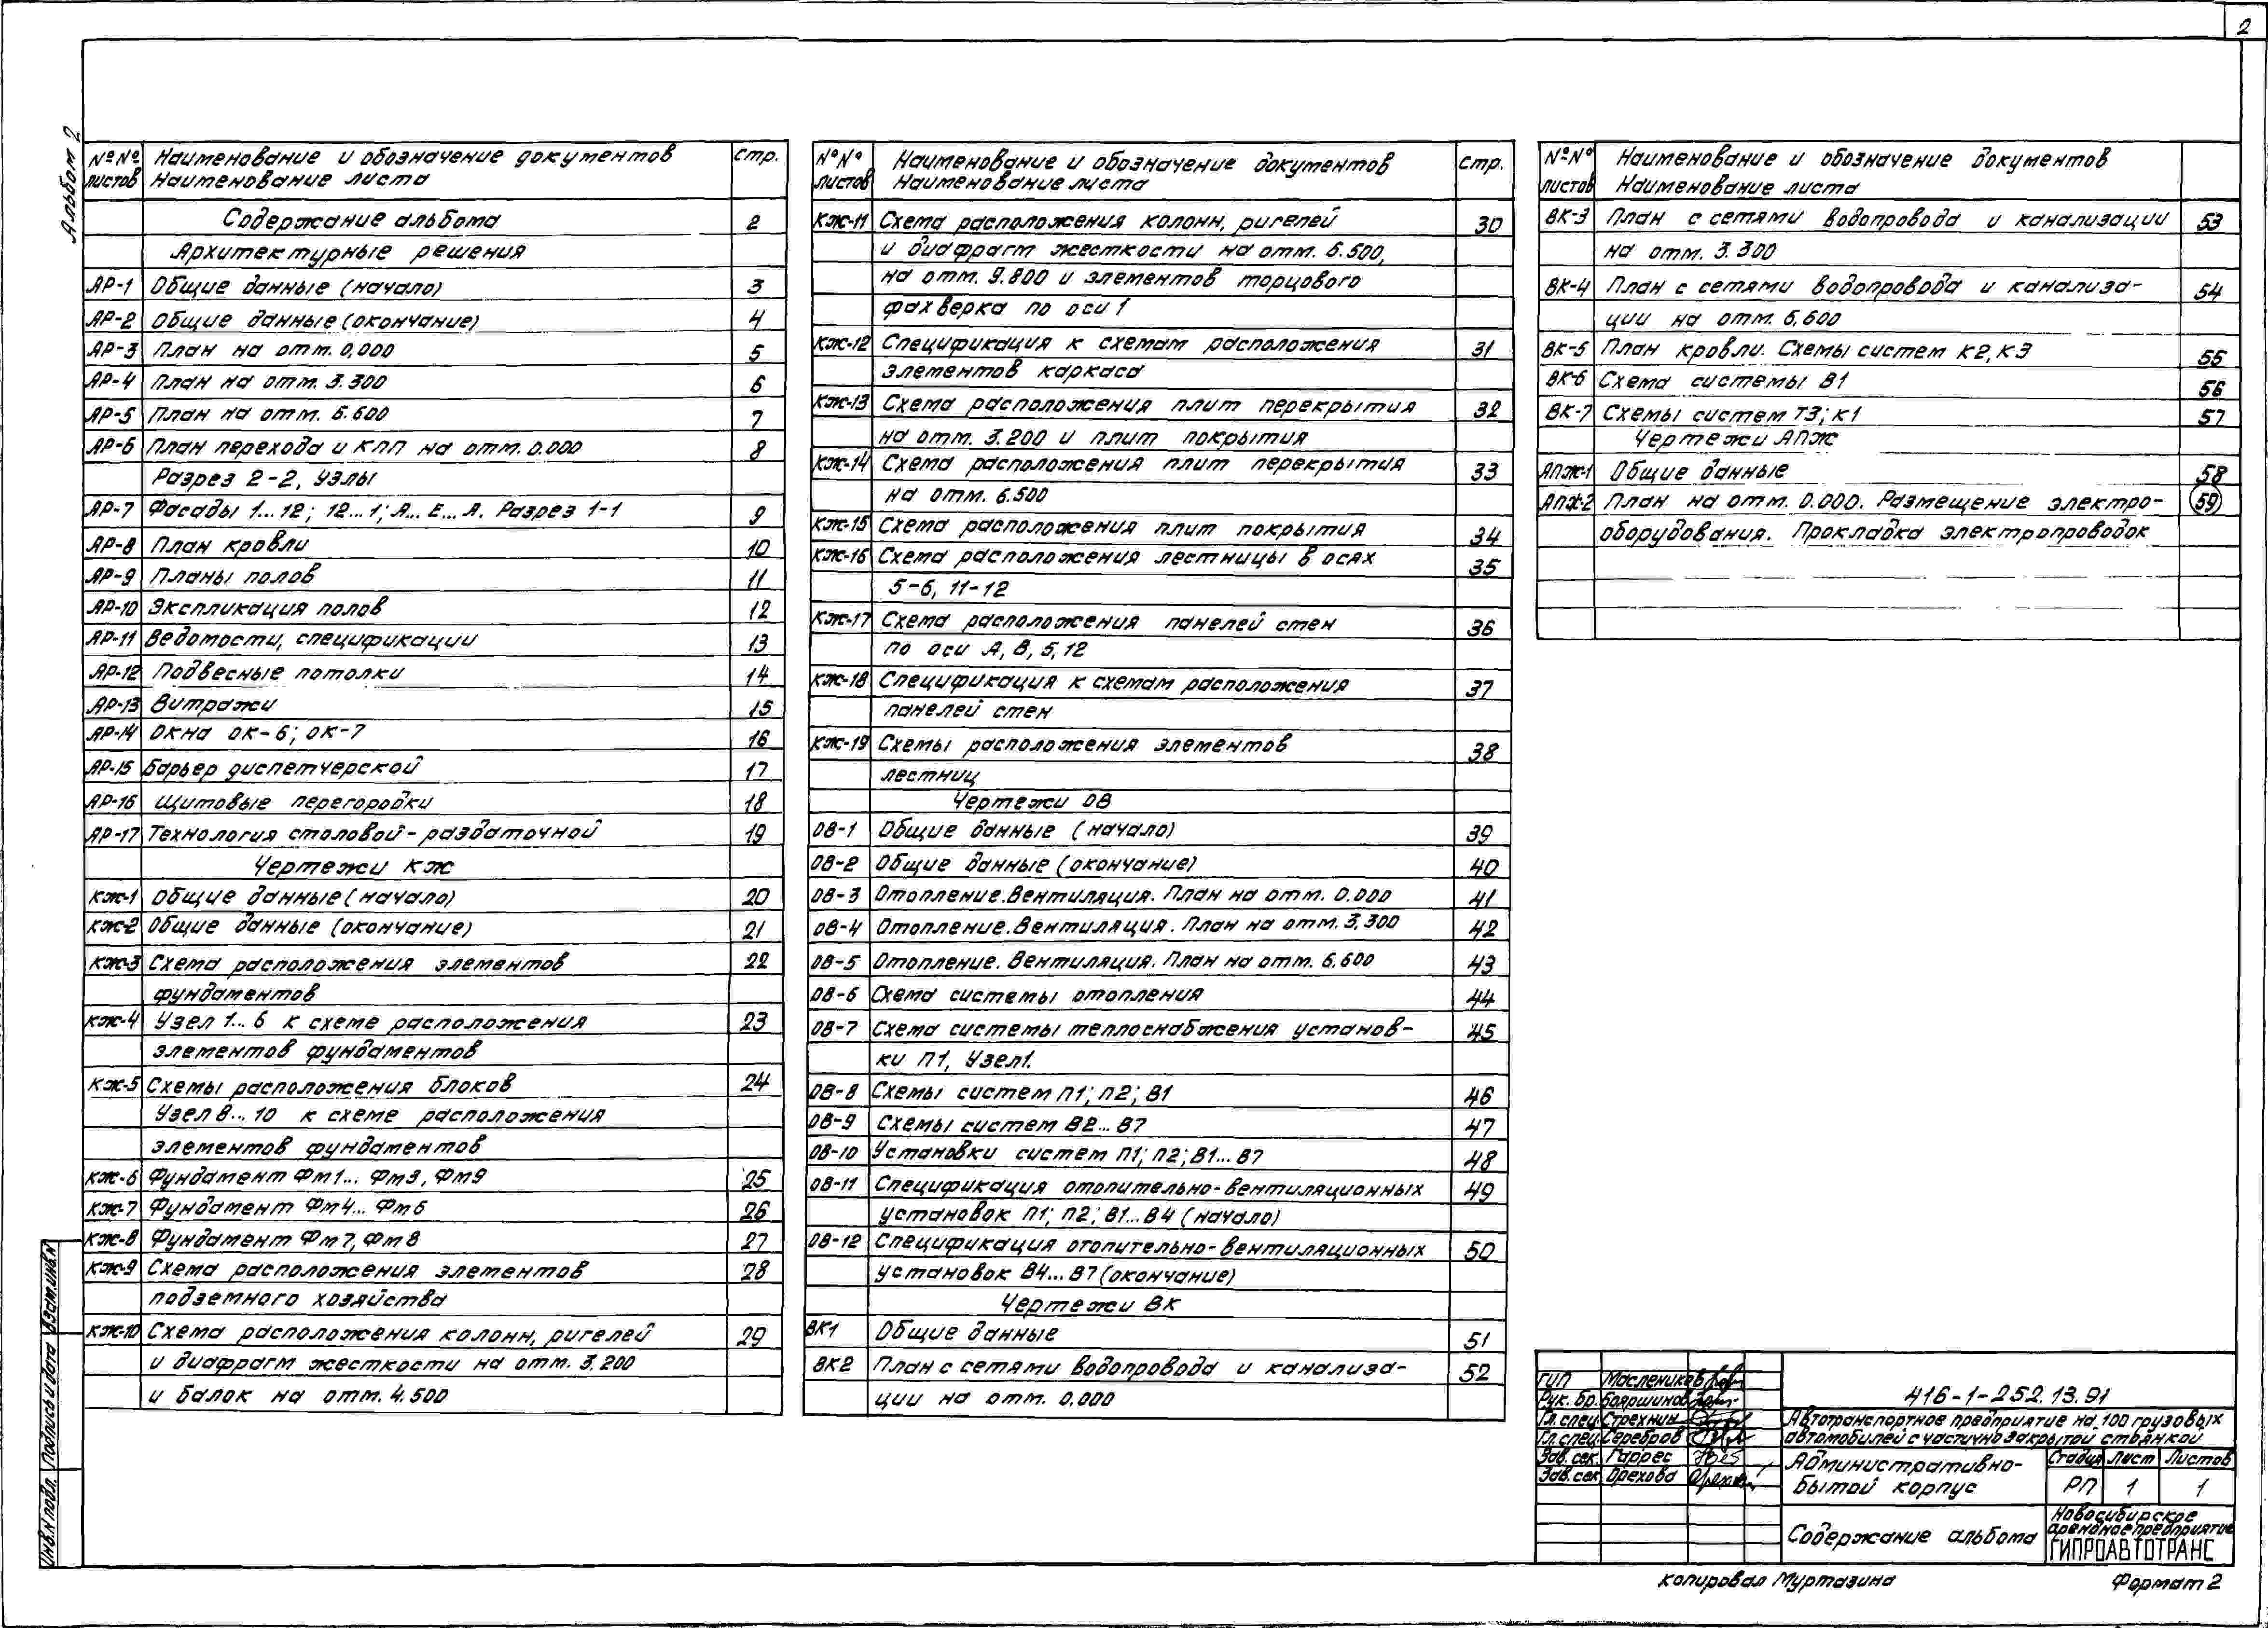 2
Альбом 2
№№ листов Наименование и обозначение документов Наименование листа Стр.
Содержание альбома 2
Архитектурные решения
АР-1 Общие данные (начало) 3
АР-2 Общие данные (окончание) 4
АР-3 План на отм. 0,000 5
АР-4 План на отм. 3.300 6
АР-5 План на отм. 6.600 7
АР-6 План перехода и КПП на отм. 0.000 8
Разрез 2-2, узлы
АР-7 Фасады 1...12; 12...1; А... Е... А. Разрез 1-1 9
АР-8 План кровли 10
АР-9 Планы полов 11
АР-10 Экспликация полов 12
АР-11 Ведомости, спецификации 13
АР-12 Подвесные потолки 14
АР-13 Витражи 15
АР-14 Окна ОК-6; ОК-7 16
АР-15 Барьер диспетчерской 17
АР-16 Щитовые перегородки 18
АР-17 Технология столовой-раздаточной 19
Чертежи КЖ
КЖ-1 Общие данные (начало) 20
КЖ-2 Общие данные (окончание) 21
КЖ-3 Схема расположения элементов 22
фундаментов
КЖ-4 Узел 1... 6 к схеме расположения 23
элементов фундаментов
КЖ-5 Схемы расположения блоков 24
Узел 8... 10 к схеме расположения
элементов фундаментов
КЖ-6 Фундамент Фм1... Фм3, Фм9 25
КЖ-7 Фундамент Фм4... Фм6 26
КЖ-8 Фундамент Фм7, Фм8 27
КЖ-9 Схема расположения элементов 28
подземного хозяйства
КЖ-10 Схема расположения колонн, ригелей 29
и диафрагм жесткости на отм. 3.200
и балок на отм. 4.500
№№ листов Наименование и обозначение документов Наименование листа Стр.
КЖ-11 Схема расположения колонн, ригелей 30
и диафрагм жесткости на отм. 6.500,
на отм. 9.800 и элементов торцового
фахверка по оси 1
КЖ-12 Спецификация к схемам расположения 31
элементов каркаса
КЖ-13 Схема расположения плит перекрытия 32
на отм. 3.200 и плит покрытия
КЖ-14 Схема расположения плит перекрытия 33
на отм. 6.500
КЖ-15 Схема расположения плит покрытия 34
КЖ-16 Схема расположения лестницы в осях 35
5-6, 11-12
КЖ-17 Схема расположения панелей стен 36
по оси А, В, 5, 12
КЖ-18 Спецификация к схемам расположения 37
панелей стен
КЖ-19 Схемы расположения элементов 38
лестниц
Чертежи ОВ
ОВ-1 Общие данные (начало) 39
ОВ-2 Общие данные (окончание) 40
ОВ-3 Отопление. Вентиляция. План на отм. 0.000 41
ОВ-4 Отопление. Вентиляция. План на отм. 3.300 42
ОВ-5 Отопление. Вентиляция. План на отм. 6.600 43
ОВ-6 Схема системы отопления 44
ОВ-7 Схема системы теплоснабжения установ- 45
ки П1, Узел1.
ОВ-8 Схемы систем П1; П2; В1 46
ОВ-9 Схемы систем В2... В7 47
ОВ-10 Установки систем П1; П2; В1... В7 48
ОВ-11 Спецификация отопительно-вентиляционных 49
установок П1; П2; В1... В4 (начало)
ОВ-12 Спецификация отопительно-вентиляционных 50
установок В4... В7 (окончание)
Чертежи ВК
ВК1 Общие данные 51
ВК2 План с сетями водопровода и канализа- 52
ции на отм. 0,000
№№ листов Наименование и обозначение документов Наименование листа
ВК-3 План с сетями водопровода и канализации 53
на отм. 3.300
ВК-4 План с сетями водопровода и канализа- 54
ции на отм. 6,600
ВК-5 План кровли. Схемы систем К2, К3 55
ВК-6 Схема системы В1 56
ВК-7 Схемы систем Т3; К1 57
Чертежи АПЖ
АПЖ-1 Общие данные 58
АПЖ-2 План на отм. 0.000. Размещение электро- 59
оборудования. Прокладка электропроводок
ГИП Маслеников
Рук. бр. Бояршинов
Гл. спец. Стрехнин
Гл. спец. Серебров
Зав. сек. Гаррес
Зав. сек. Орехова
416-1-252.13.91
Автотранспортное предприятие на 100 грузовых
автомобилей с частично закрытой стоянкой
Административно-
бытой корпус
Стадия Лист Листов
РП 1 1
Содержание альбома
Новосибирское
арендное предприятие
ГИПРОАВТОТРАНС
Копировал Муртазина
Формат 2
Инв.№ подл. Подпись и дата Взам.инв.№